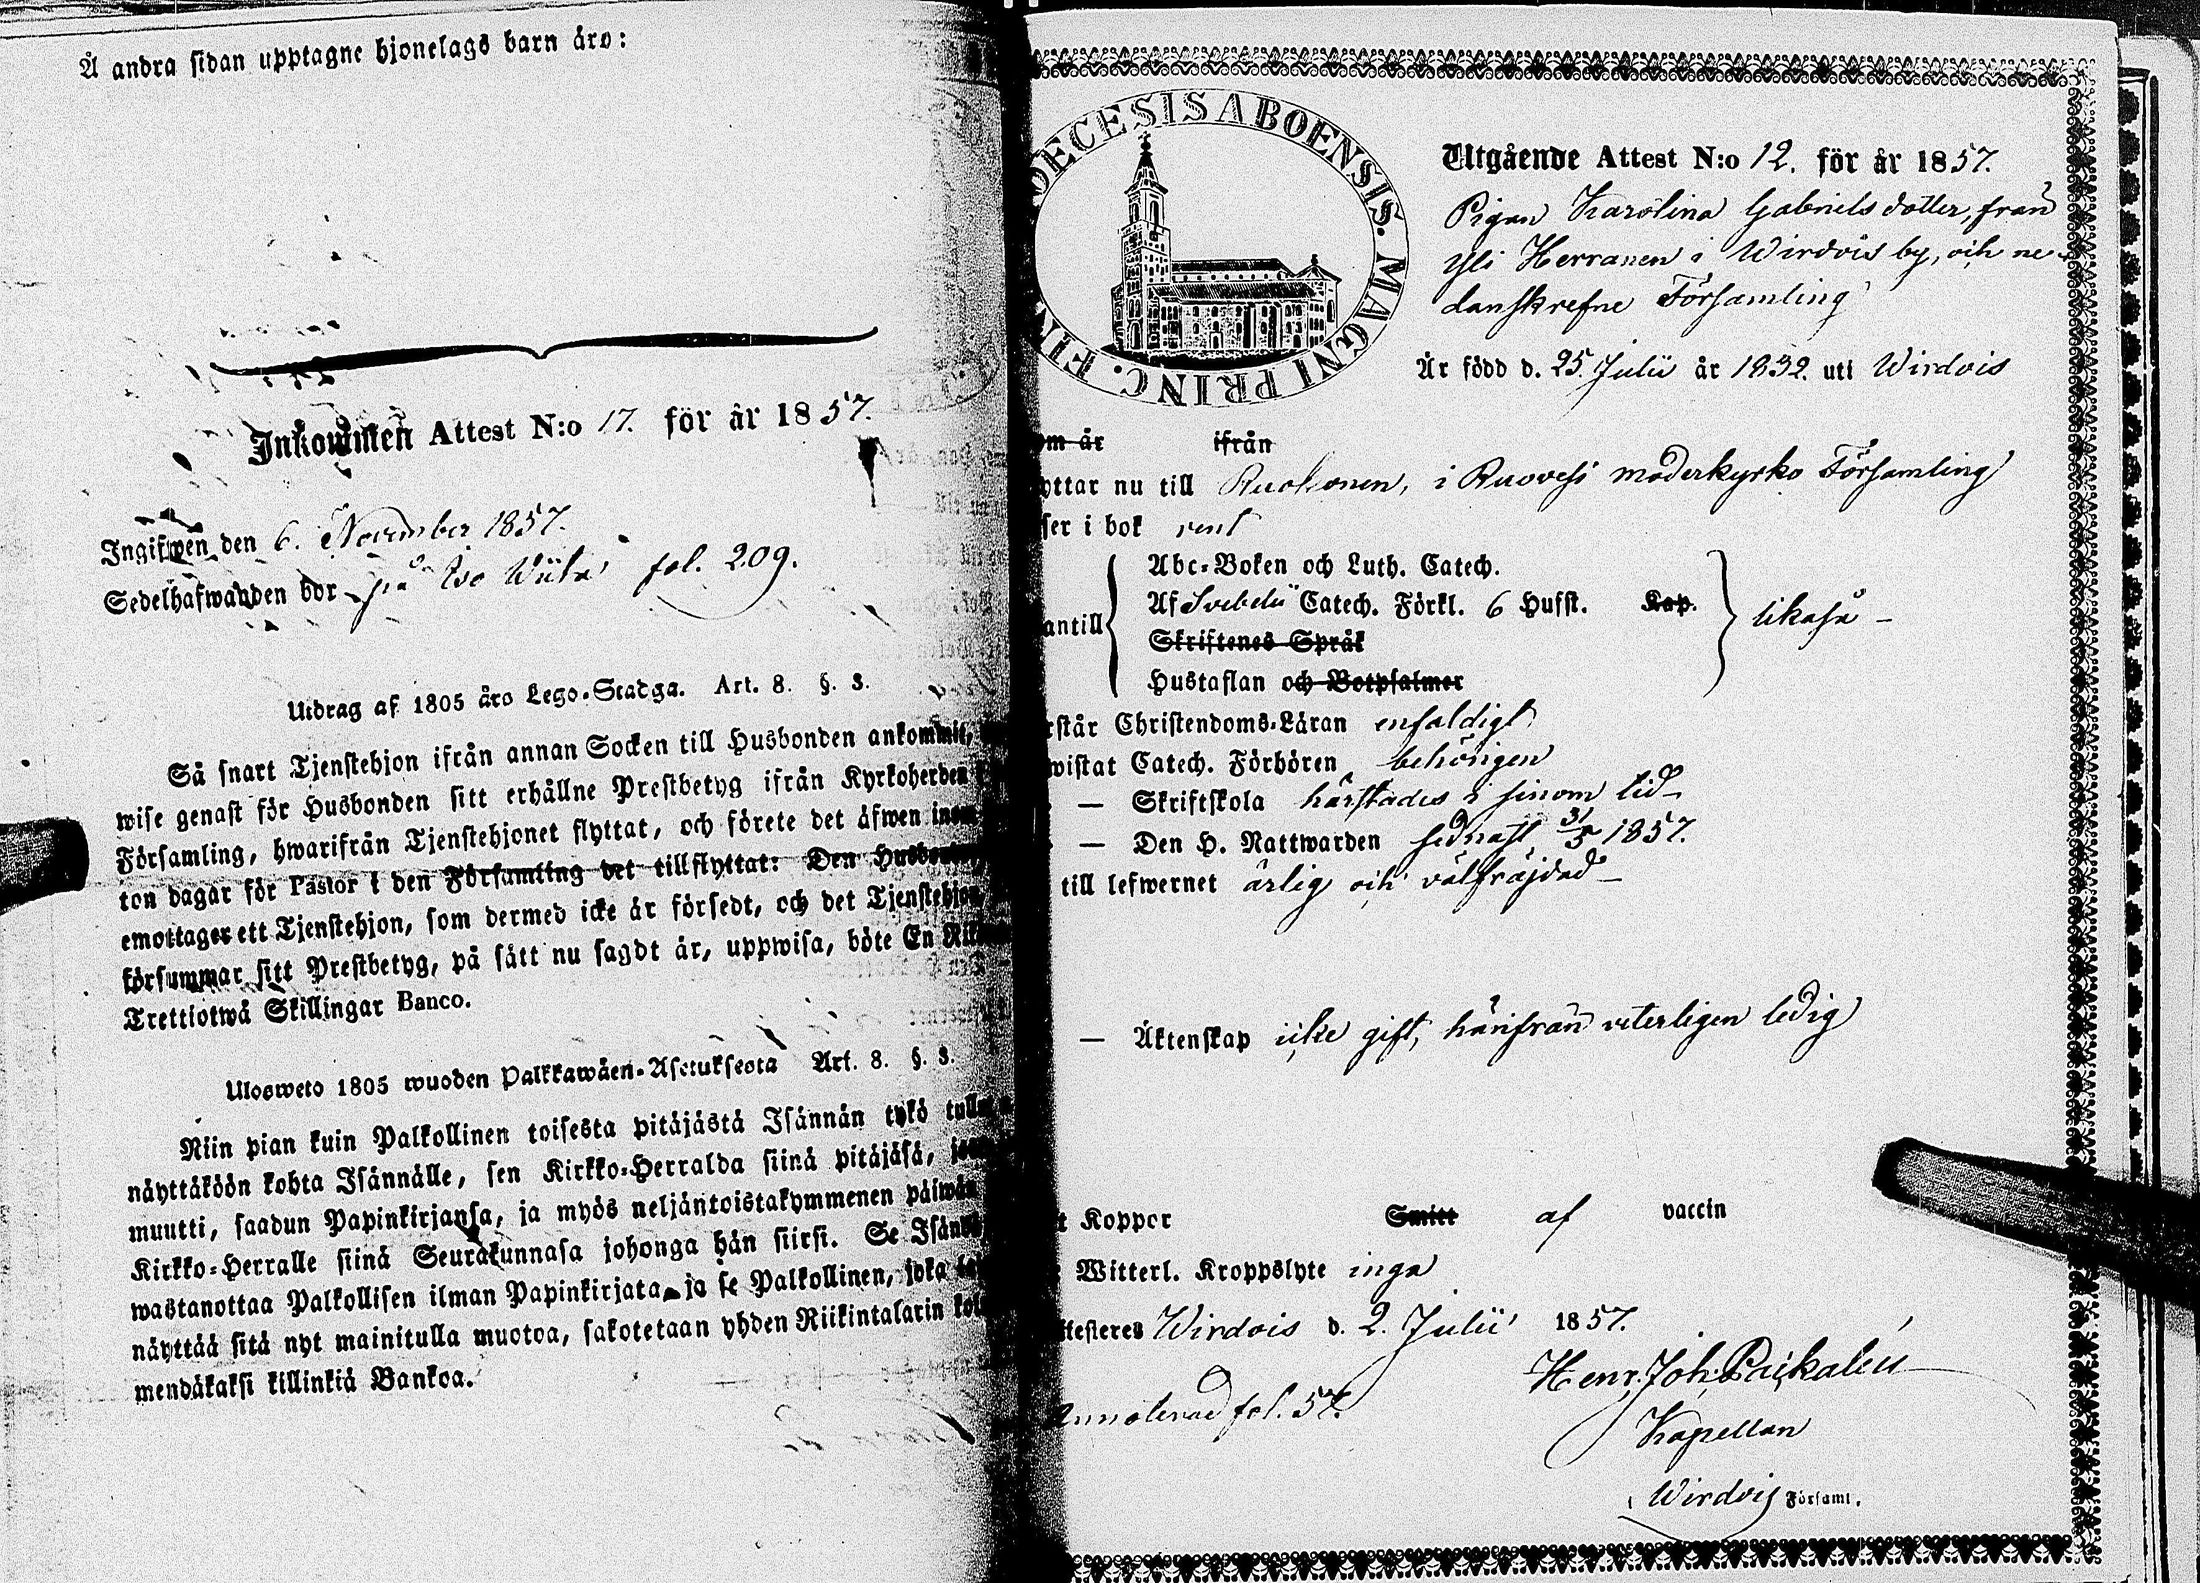 Å andra sidan upptagne hjonelags barn äro:
Inkommen Attest N:o 17. för år 1857.
Ingifwen den 6. November 1857.
Sedelhafwanden bor på Iso Wiita fol. 209.
Utdrag af 1805 års Lego-Stadga. Art. 8. §. 3.
Så snart Tjenstehjon ifrån annan Socken till Husbonden ankommit,
wise genast för Husbonden sitt erhållne Prestbetyg ifrån Kyrkoherden
Församling, hwarifrån Tjenstehjonet flyttat, och förete det äfwen inom
ton dagar för Pastor i den Församling det tillflyttat: Den Husbonde,
emottager ett Tjenstehjon, som dermed icke är försedt, och det Tjenstehjon,
försummar sitt Prestbetyg, på sätt nu sagdt är, uppwisa, böte En
Trettiotwå Skillingar Banco.
Ulosweto 1805 wuoden Palkkawäen-Asetuksesta Art. 8. §. 3.
Niin pian kuin Palkollinen toisesta pitäjästä Isännän tykö
näyttäköön kohta Isännälle, sen Kirkko-Herralda siinä pitäjäsä,
muutti, saadun Papinkirjansa, ja myös neljäntoistakymmenen päiwän
Kirkko-Herralle siinä Seurakunnasa johonga hän siirsi. Se
wastanottaa Palkollisen ilman Papinkirjata, ja se Palkollinen, joka
näyttää sitä nyt mainitulla muotoa, sakotetaan yhden Riikintalarin
mendäkaksi killinkiä Bankoa.
DECESIS ABOENSIS. MAGNI PRINC. FIN
Utgående Attest N:o 12. för år 1857.
Pigan Karolina Gabrielsdotter, från
Yli Herranen i Wirdois by, och ne-
danskrefne Församling
Är född d. 25 Julii år 1832. uti Wirdois
om år ifrån
yttar nu till Ruokonen, i Ruovesi moderkyrko Församling
ser i bok rent
Abc-Boken och Luth. Catech.
Af Svebelii Catech. Förkl. 6 Hufst. Kap.
antill
likaså –
Skriftenes Språk
Hustaflan och Botpsalmer
rstår Christendoms-Läran enfaldigt
wistat Catech. Förhören behörigen
— Skriftskola härstädes i sinom tid –
— Den H. Nattwarden sednast 31/5 1857.
till lefwernet ärlig och välfräjdad –
— Äktenskap icke gift, härifrån veterligen ledig
t Koppor Smitt af vaccin
Witterl. Kroppslyte inga
ttesteres Wirdois d. 2. Julii 1857.
Henr. Joh. Paikalén
Annoterad fol. 57.
Kapellan
Wirdois Församl.